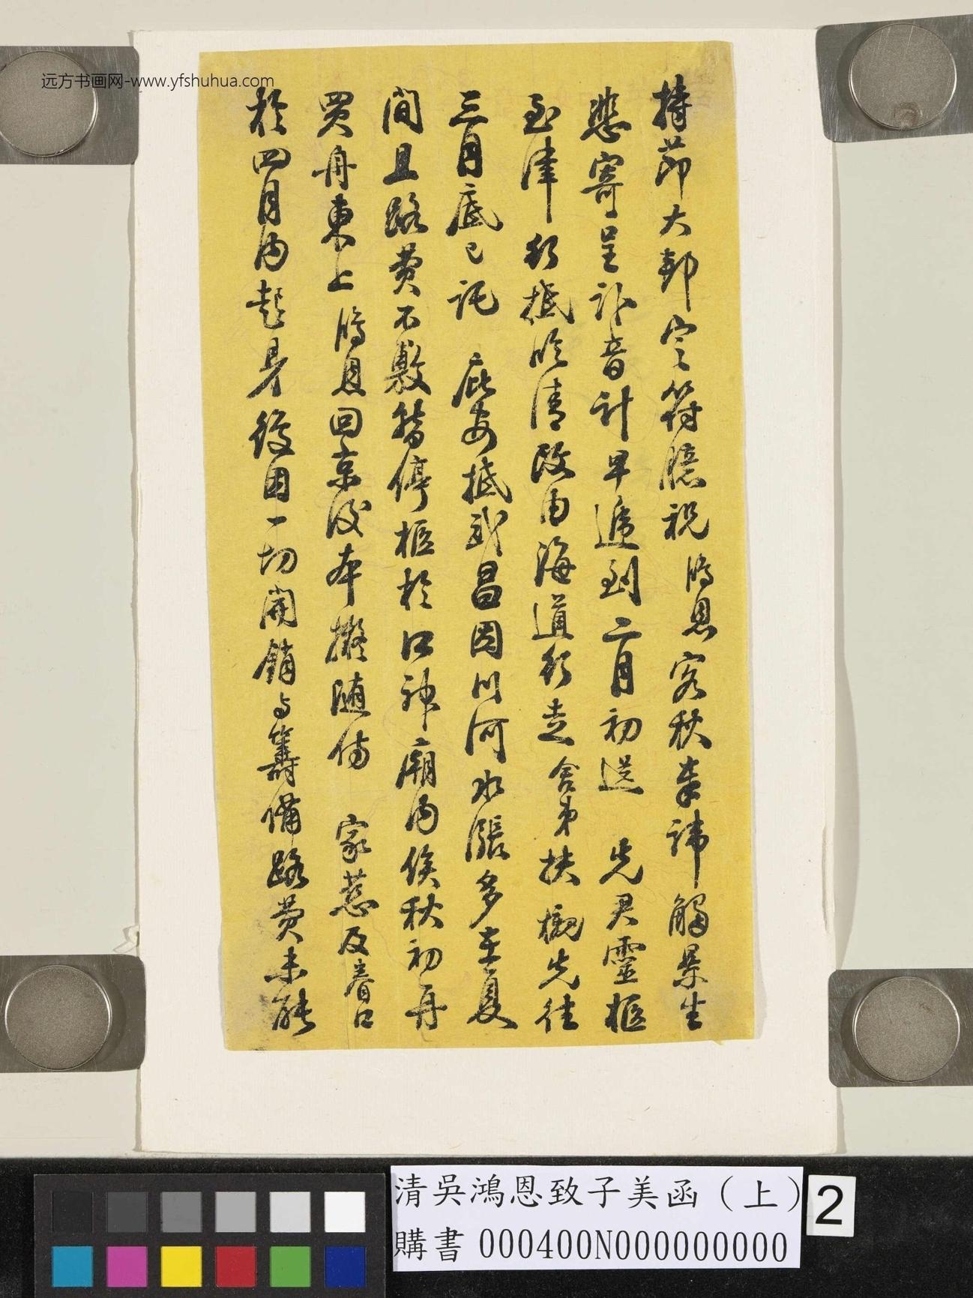 远方书画网-www.yfshuhua.com
持節大邦定符臆祝鴻恩客秋奉諱觸景生
悲寄呈訃音計早遞到二月初送 先君靈柩
至津 行抵臨清改由海道行走舍弟扶櫬先往
三月底已託 庇安抵武昌因川河水漲多在夏
間且路費不敷暫停柩於江神廟內俟秋初再
買舟東上鴻恩回京後本擬隨侍 家慈及眷口
於四月內起身緣因一切開銷與籌備路費未能
清吳鴻恩致子美函（上）
購書 000400N000000000
2